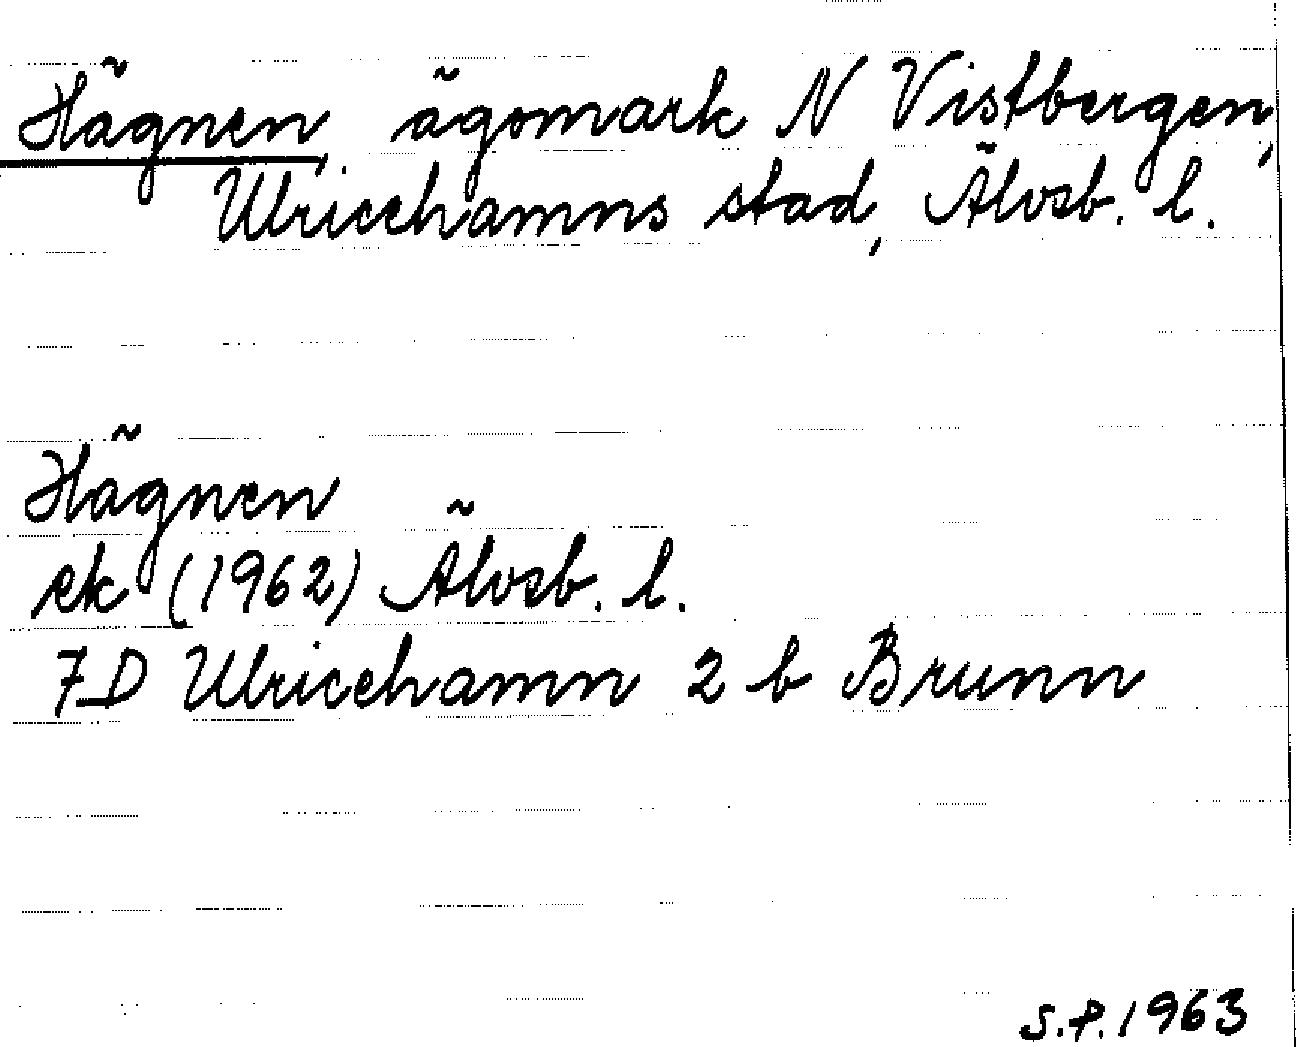 Hägnen, ägomark N Vistbergen,
Ulricehamns stad, Älvsb. l.
Hägnen
ek (1962) Älvsb. l.
7D Ulricehamn 2 b Brunn
S.P. 1963